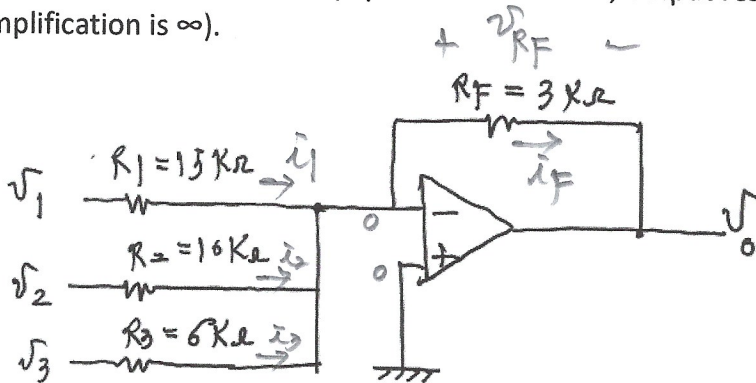 mplification is ∞).
+ v_RF −
RF = 3 KΩ
i_F
v_1 R1 = 15 KΩ i_1
0 −
R2 = 10 KΩ i_2
v_2 0 +
v_0
R3 = 6 KΩ i_3
v_3